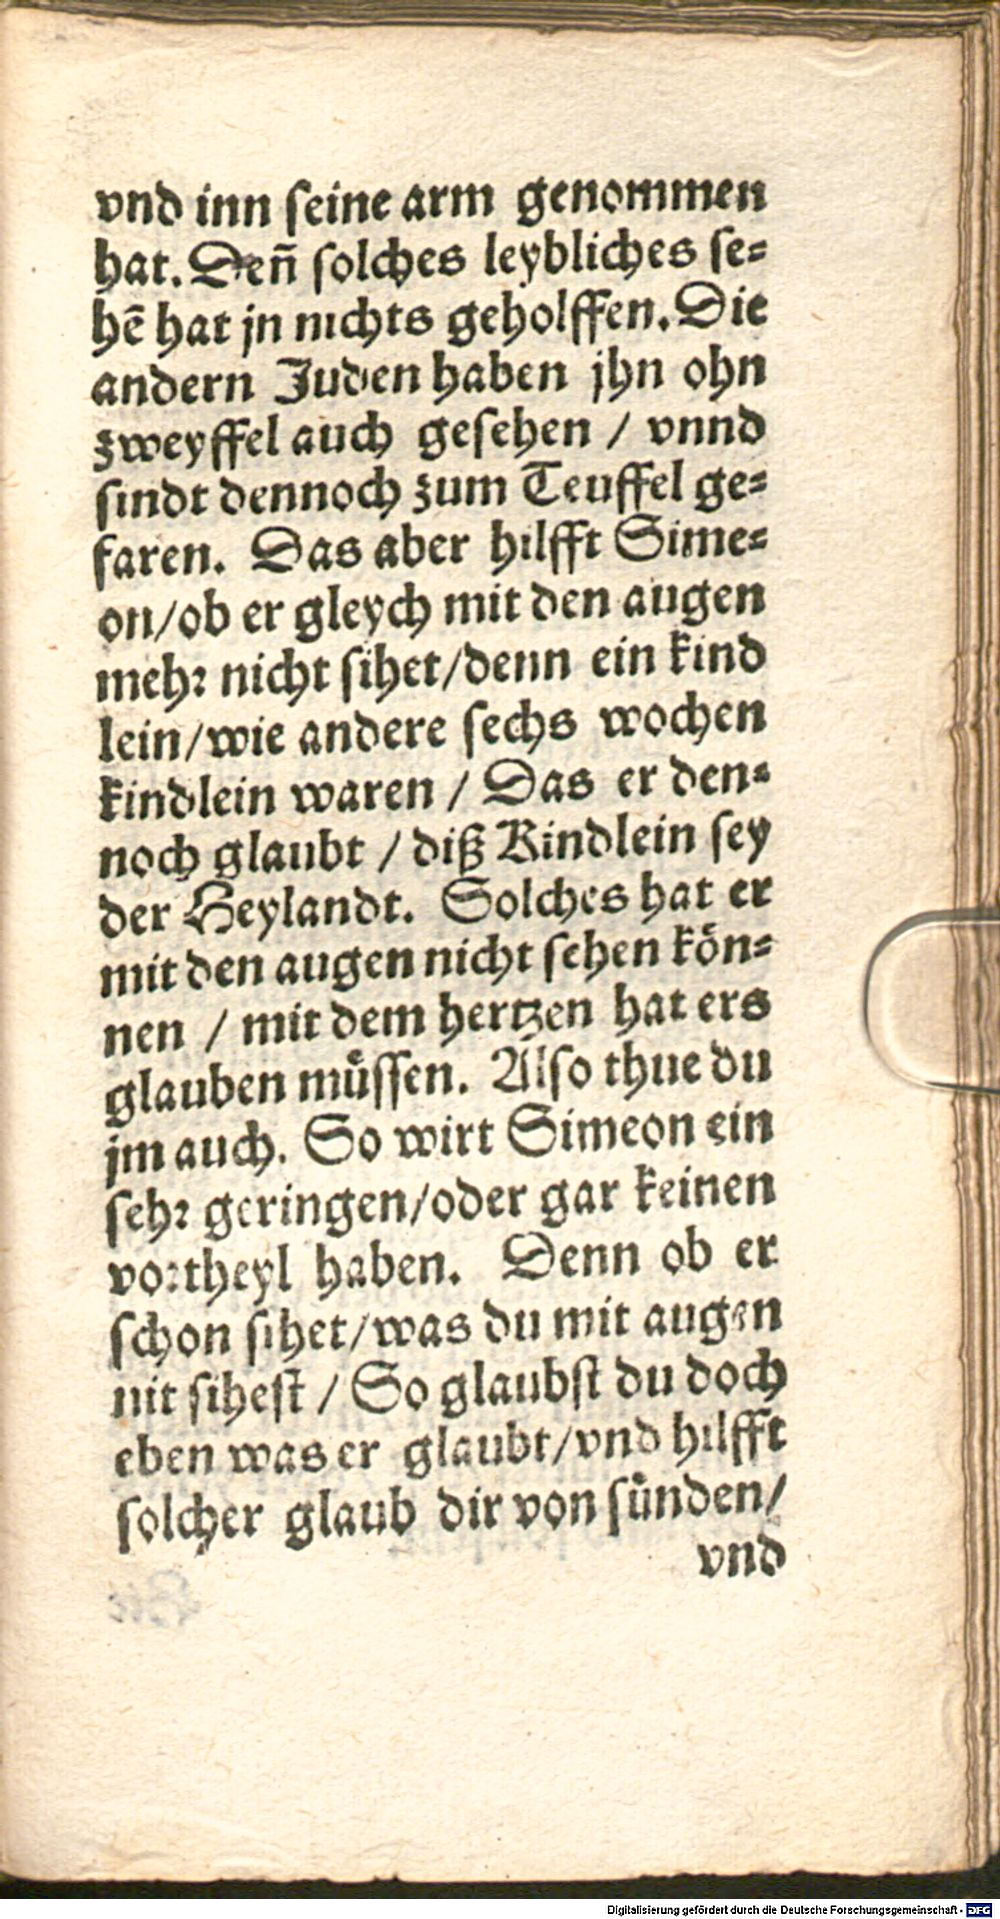 vnd inn seine arm genommen
hat. Den̄ solches leybliches se⸗
hē hat jn nichts geholffen. Die
andern Juden haben jhn ohn
zweyffel auch gesehen / vnnd
sindt dennoch zum Teuffel ge⸗
faren. Das aber hilfft Sime⸗
on/ob er gleych mit den augen
mehr nicht sihet/denn ein kind
lein/wie andere sechs wochen
kindlein waren / Das er den⸗
noch glaubt / diß Kindlein sey
der Heylandt. Solches hat er
mit den augen nicht sehen koͤn⸗
nen / mit dem hertzen hat ers
glauben muͤssen. Also thue du
jm auch. So wirt Simeon ein
sehr geringen/oder gar keinen
vortheyl haben. Denn ob er
schon sihet/was du mit augen
nit sihest / So glaubst du doch
eben was er glaubt/vnd hilfft
solcher glaub dir von suͤnden/
vnd
Digitalisierung gefördert durch die Deutsche Forschungsgemeinschaft - DFG